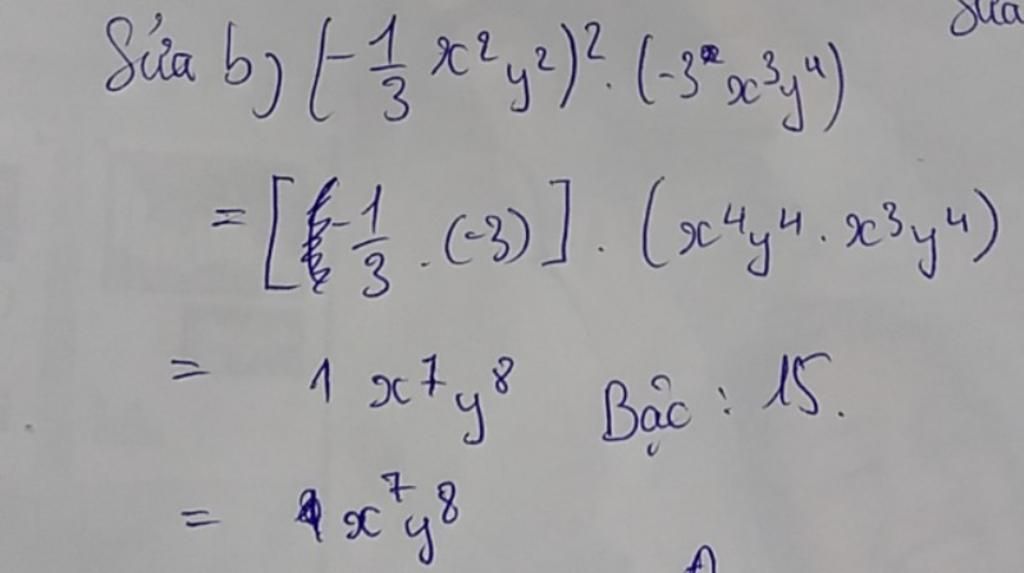 Sửa
Sửa b) (-1/3 x²y²)². (-3 x³y⁴)
= [-1/3 . (-3)] . (x⁴y⁴ . x³y⁴)
= 1 x⁷y⁸ Bậc : 15.
= x⁷y⁸